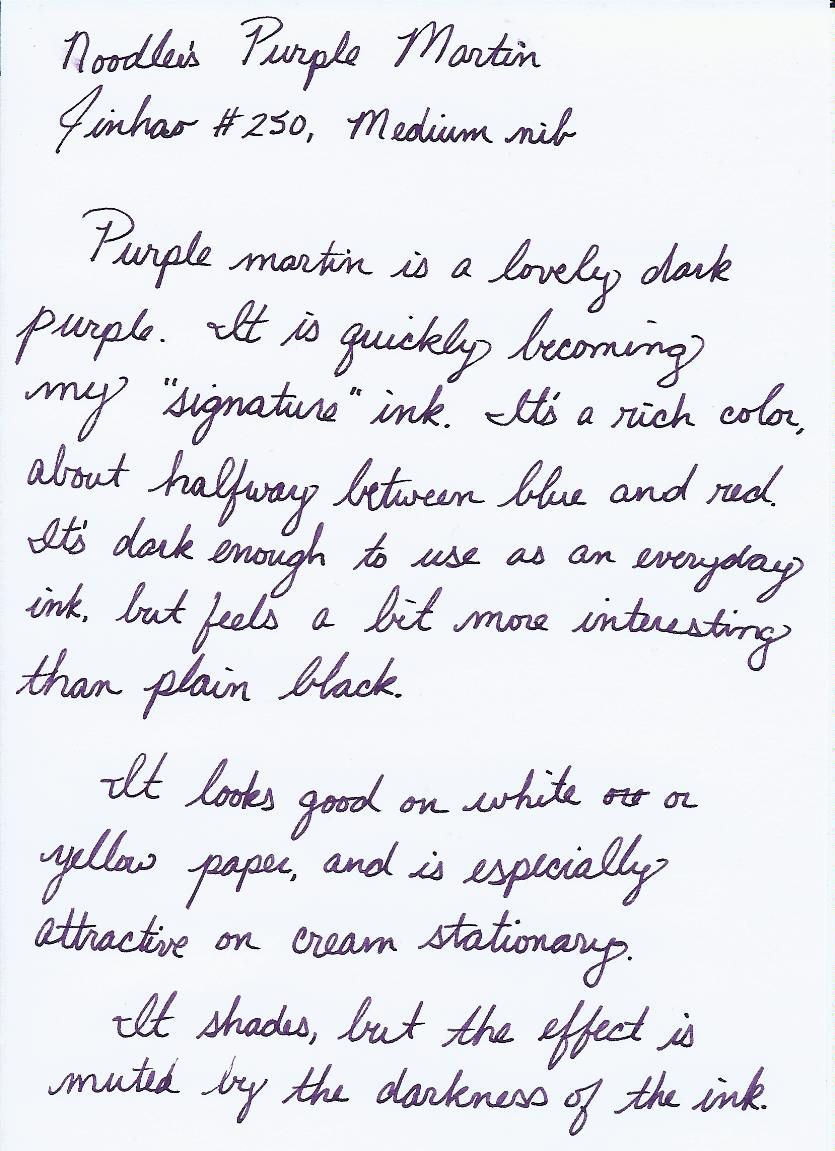 Noodler's Purple Martin
Jinhao #250, Medium nib
Purple martin is a lovely dark
purple. It is quickly becoming
my "signature" ink. It's a rich color,
about halfway between blue and red.
It's dark enough to use as an everyday
ink, but feels a bit more interesting
than plain black.
It looks good on white or
yellow paper, and is especially
attractive on cream stationary.
It shades, but the effect is
muted by the darkness of the ink.